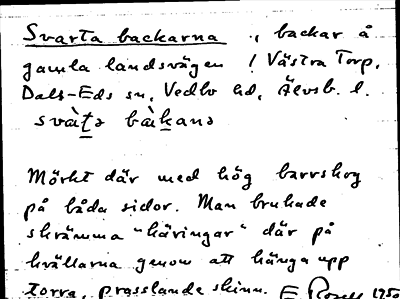 Svarta backarna ., backar å
gamla landsvägen / Västra Torp,
Dals-Eds sn, Vedbo hd, Älvsb. l.
svàt̠ə bàk̠anə
Mörkt där med hög barrskog
på båda sidor. Man brukade
skrämma "käringar" där på
kvällarna genom att hänga upp
torra, prasslande skinn. E 1950